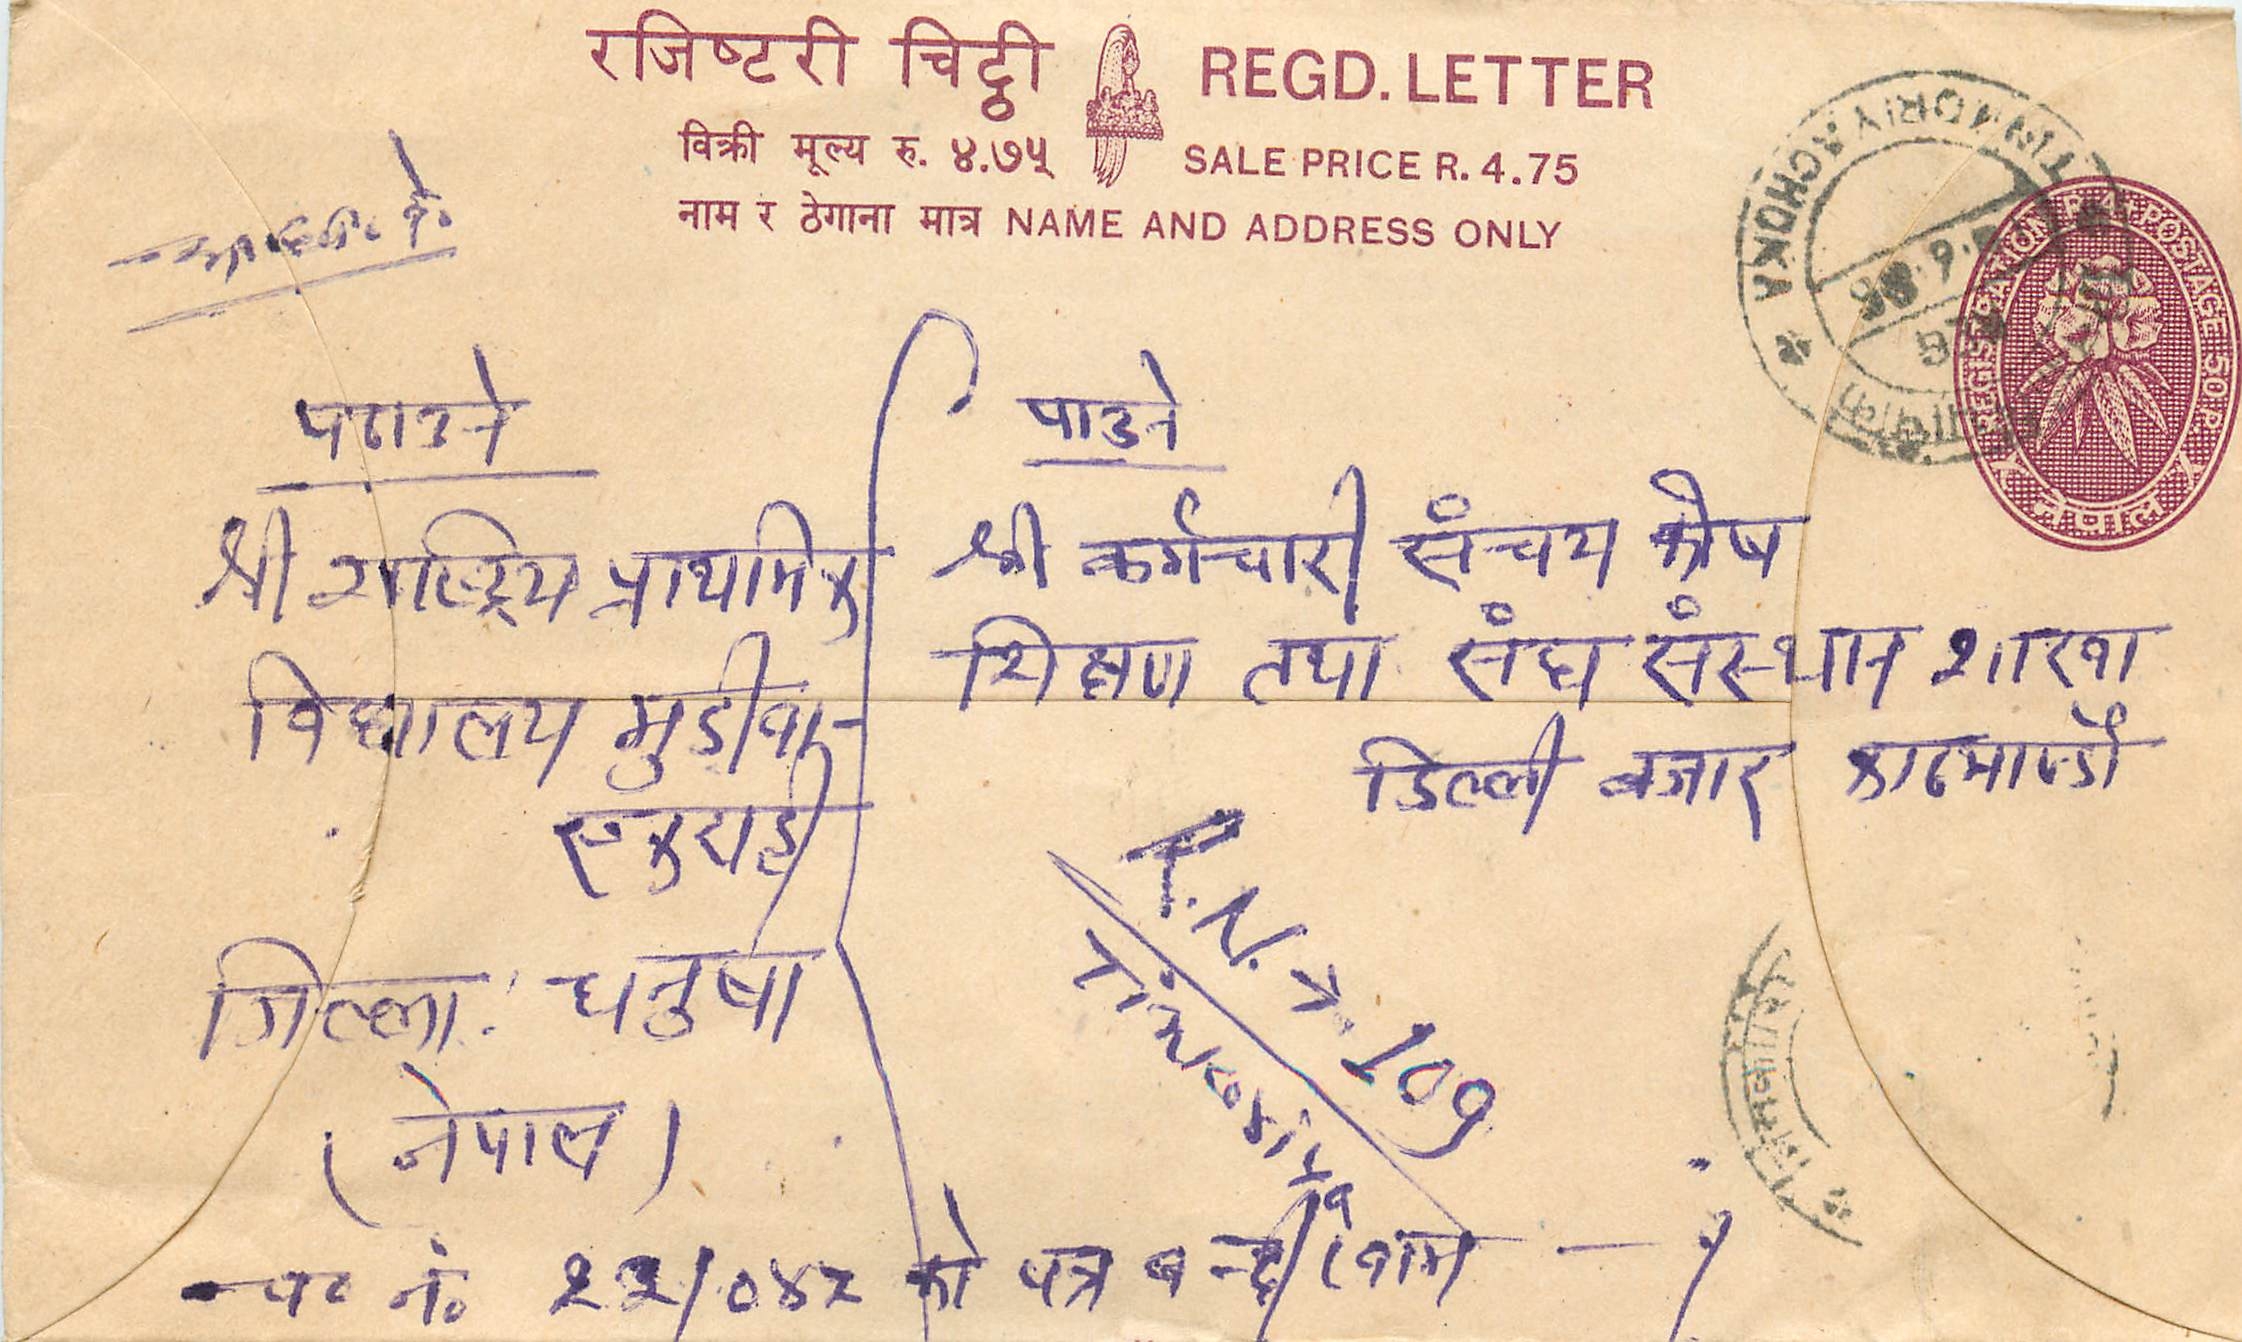 रजिष्टरी चिट्ठी REGD. LETTER
विक्री मूल्य रु. ४.७५ SALE PRICE R. 4.75
नाम र ठेगाना मात्र NAME AND ADDRESS ONLY
REGISTRATION R.4 POSTAGE 50 P.
नेपाल
TINKORIYA CHOKA
पठाउने
श्री राष्ट्रिय प्राथमिक
विद्यालय
जिल्ला: धनुषा
(नेपाल)
पाउने
श्री कर्मचारी संचय कोष
शिक्षण तथा संघ संस्थान शाखा
डिल्ली बजार काठमाण्डौ
109
Tinkoriya
च० नं० २२/०४२ को पत्र बन्दी खाम